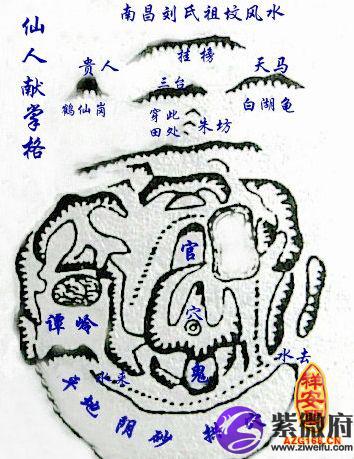 南昌刘氏祖坟风水
仙人献掌格
挂榜
贵人
天马
三台
鹤仙岗
白湖龟
穿此
田处
朱坊
官
穴
谭岭
鬼
水去
水来
夹地阴砂
祥安
紫微府
www.ziweifu.com
AZG168.CN